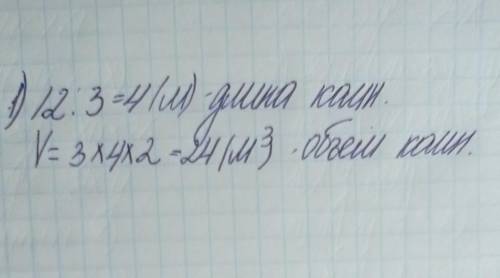 1) 12:3=4(м) - длина комн.
V=3×4×2=24(м³) - объем комн.